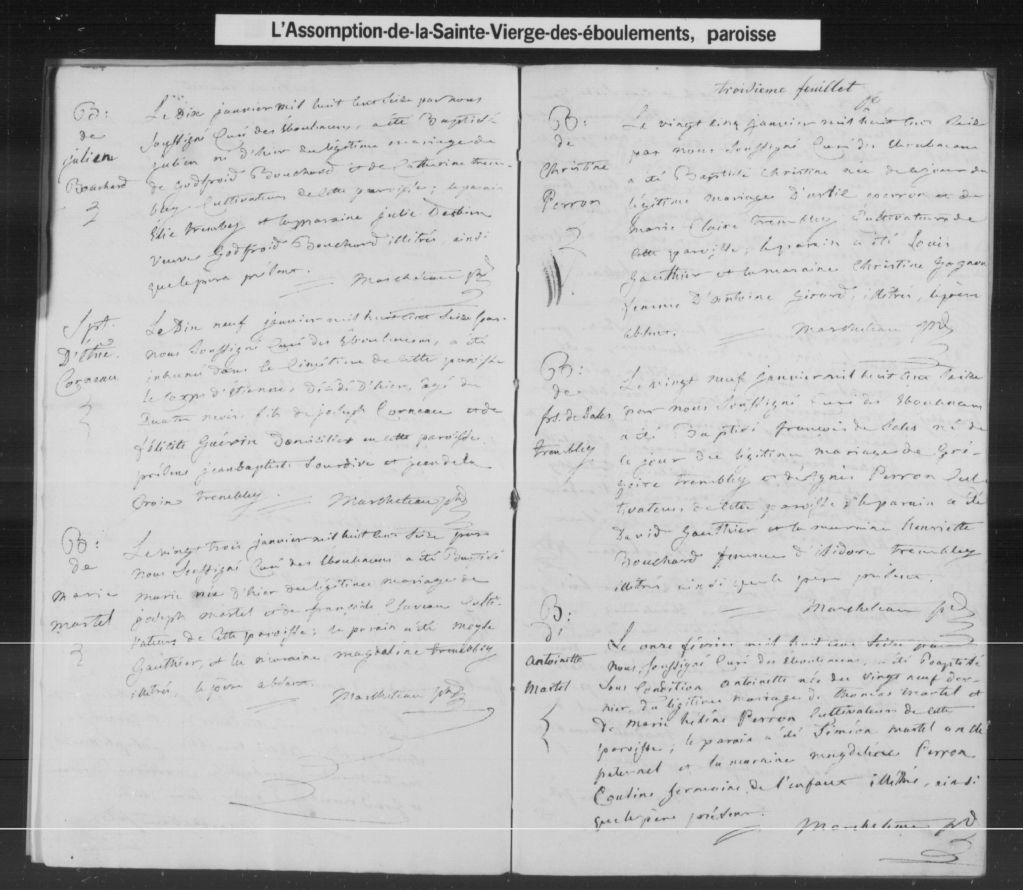 L'Assomption-de-la-Sainte-Vierge-des-éboulements, paroisse
B:
de
julien
Bouchard
Le Dix janvier mil huit cent seize par nous
soussigné Curé des éboulemens, a été Baptisé
julien né d'hier du légitime mariage de
de Godfroid Bouchard et de Catherine trem-
bley Cultivateurs de cette paroisse; le parain
Elie trembley et la maraine julie
veuve Godfroid Bouchard illitrés, ainsi
que le père présent.
Marcheteau ptr
Spt.
D'Etne
Corneau
Le Dix neuf janvier mil huit cent seize par
nous soussigné Curé des éboulemens, a été
inhumé dans le Cimétière de cette paroisse
le corps d'étienne, décédé d'hier, agé de
fils de joseph Corneau et de
félicité Guérin Domiciliés en cette paroisse
présens jean baptiste Lourdive et jean de la
Croix trembley.
Marcheteau ptr
B:
de
marie
martel
Le vingt trois janvier mil huit cent seize par
nous soussigné Curé des éboulemens a été Baptisé
marie née d'hier du légitime mariage de
joseph martel et de françoise Culti-
vateurs de cette paroisse; le parain a été moyse
Gauthier, et la maraine magdeline trembley
illitrés, le père absent.
Marcheteau ptr
troisieme feuillet
B:
de
Christine
Perron
Le vingt cinq janvier mil huit cent seize
par nous soussigné Curé des éboulemens
a été Baptisée Christine née de ce jour du
légitime mariage D' perron et de
marie Claire trembley Cultivateurs de
cette paroisse, le parain a été Louis
Gauthier et la maraine Christine Gagnon
femme D'antoine Girard, illitrés, le père
absent.
Marcheteau ptr
B:
de
frs. de Sales
trembley
Le vingt neuf janvier mil huit cent seize
par nous soussigné Curé des éboulemens
a été Baptisé françois de Sales né de
ce jour du légitime mariage de Gré-
goire trembley et d'Agnès Perron Cul-
tivateurs de cette paroisse, le parain a été
David Gauthier et la maraine henriette
Bouchard femme d'isidore trembley
illitrés ainsi que le père présent.
Marcheteau ptr
B:
d'
antoinette
Martel
Le onze février mil huit cent seize par
nous soussigné Curé des éboulemens, a été Baptisée
sous condition antoinette née du vingt neuf der-
nier, du légitime mariage de thomas martel et
de marie hélène Perron Cultivateurs de cette
paroisse; le parain a été Siméon martel oncle
paternel et la maraine magdelène Perron
Cousine germaine de l'enfant illitrés, ainsi
que le père présent.
Marcheteau ptr